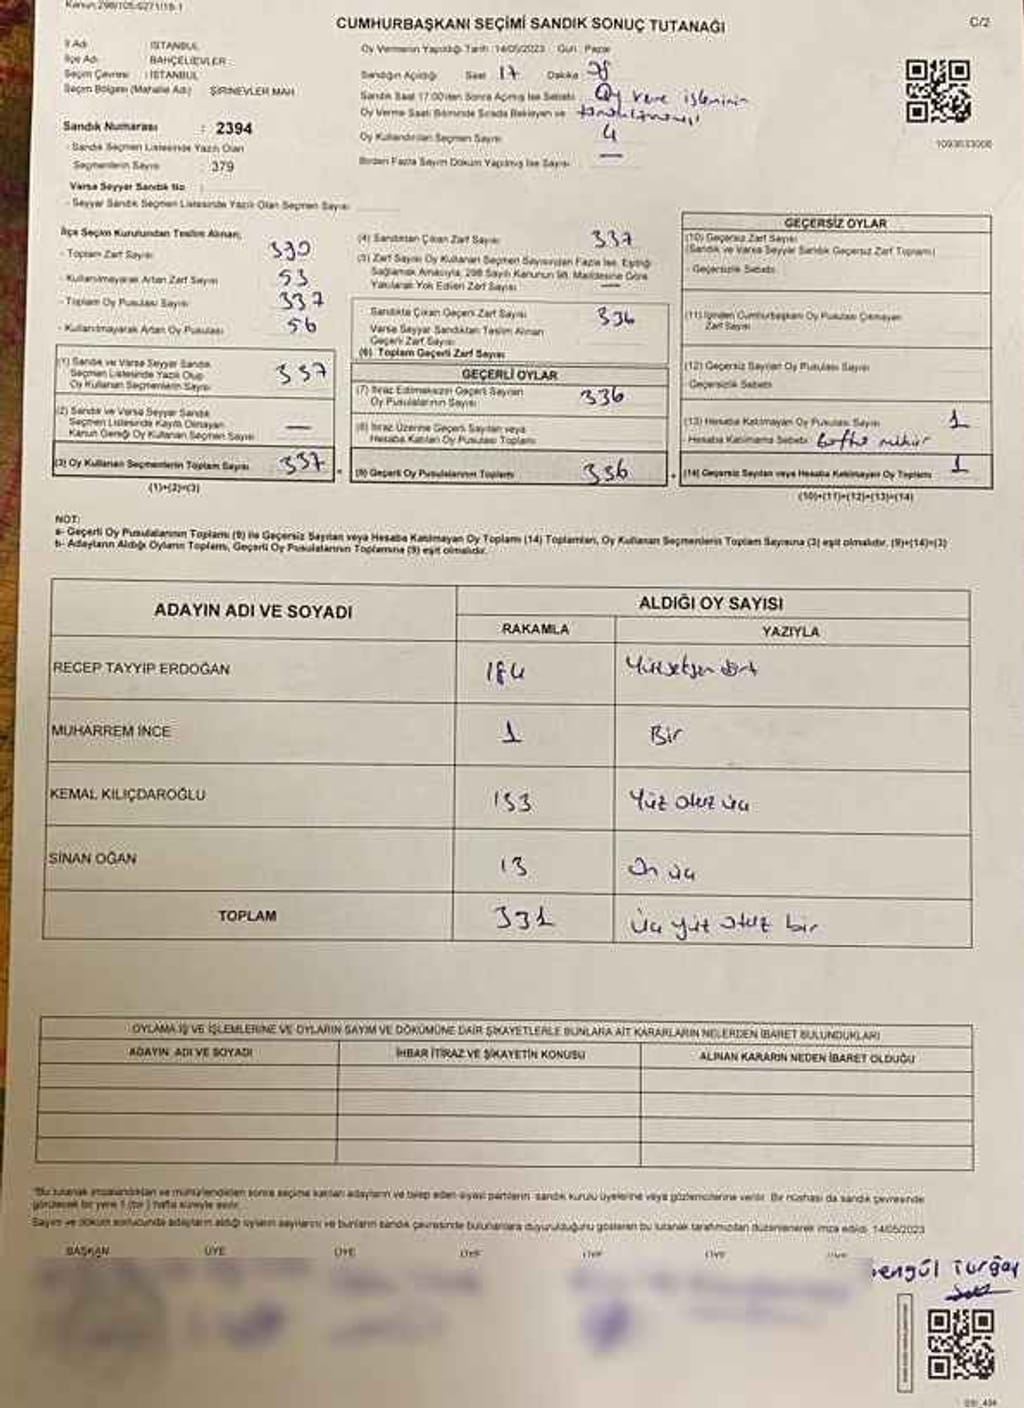 Kanun:298/105-6271/18-1
CUMHURBAŞKANI SEÇİMİ SANDIK SONUÇ TUTANAĞI
C/2
İl Adı : İSTANBUL
İlçe Adı : BAHÇELİEVLER
Seçim Çevresi : İSTANBUL
Seçim Bölgesi (Mahalle Adı) : ŞİRİNEVLER MAH
Sandık Numarası : 2394
- Sandık Seçmen Listesinde Yazılı Olan
Seçmenlerin Sayısı : 379
Varsa Seyyar Sandık No :
- Seyyar Sandık Seçmen Listesinde Yazılı Olan Seçmen Sayısı
Oy Vermenin Yapıldığı Tarih :14/05/2023 Gün : Pazar
Sandığın Açıldığı Saat 17 Dakika
Sandık Saat 17.00'den Sonra Açılmış İse Sebebi : Oy verme işleminin
Oy Verme Saati Bitiminde Sırada Bekleyen ve
Oy Kullandırılan Seçmen Sayısı 4
Birden Fazla Sayım Döküm Yapılmış İse Sayısı —
1093633006
İlçe Seçim Kurulundan Teslim Alınan;
- Toplam Zarf Sayısı 390
- Kullanılmayarak Artan Zarf Sayısı 53
- Toplam Oy Pusulası Sayısı 337
- Kullanılmayarak Artan Oy Pusulası 56
(1) Sandık ve Varsa Seyyar Sandık
Seçmen Listesinde Yazılı Olup
Oy Kullanan Seçmenlerin Sayısı 337
(2) Sandık ve Varsa Seyyar Sandık
Seçmen Listesinde Kayıtlı Olmayan
Kanun Gereği Oy Kullanan Seçmen Sayısı —
(3) Oy Kullanan Seçmenlerin Toplam Sayısı 337
(1)+(2)=(3)
(4) Sandıktan Çıkan Zarf Sayısı 337
(5) Zarf Sayısı Oy Kullanan Seçmen Sayısından Fazla İse, Eşitliği
Sağlamak Amacıyla, 298 Sayılı Kanunun 98. Maddesine Göre
Yakılarak Yok Edilen Zarf Sayısı —
Sandıkta Çıkan Geçerli Zarf Sayısı 336
Varsa Seyyar Sandıktan Teslim Alınan
Geçerli Zarf Sayısı
(6) Toplam Geçerli Zarf Sayısı
GEÇERLİ OYLAR
(7) İtiraz Edilmeksizin Geçerli Sayılan
Oy Pusulalarının Sayısı 336
(8) İtiraz Üzerine Geçerli Sayılan veya
Hesaba Katılan Oy Pusulası Toplamı
(9) Geçerli Oy Pusulalarının Toplamı 336
GEÇERSİZ OYLAR
(10) Geçersiz Zarf Sayısı
(Sandık ve Varsa Seyyar Sandık Geçersiz Zarf Toplamı)
- Geçersizlik Sebebi
(11) İçinden Cumhurbaşkanı Oy Pusulası Çıkmayan
Zarf Sayısı
(12) Geçersiz Sayılan Oy Pusulası Sayısı
- Geçersizlik Sebebi
(13) Hesaba Katılmayan Oy Pusulası Sayısı 1
- Hesaba Katılmama Sebebi mühür
(14) Geçersiz Sayılan veya Hesaba Katılmayan Oy Toplamı 1
(10)+(11)+(12)+(13)=(14)
NOT:
a- Geçerli Oy Pusulalarının Toplamı (9) ile Geçersiz Sayılan veya Hesaba Katılmayan Oy Toplamı (14) Toplamları, Oy Kullanan Seçmenlerin Toplam Sayısına (3) eşit olmalıdır. (9)+(14)=(3)
b- Adayların Aldığı Oyların Toplamı, Geçerli Oy Pusulalarının Toplamına (9) eşit olmalıdır.
ADAYIN ADI VE SOYADI
ALDIĞI OY SAYISI
RAKAMLA YAZIYLA
RECEP TAYYIP ERDOĞAN 184 Yüzseksen dört
MUHARREM İNCE 1 Bir
KEMAL KILIÇDAROĞLU 133 Yüz otuz üç
SİNAN OĞAN 13 On üç
TOPLAM 331 Üç yüz otuz bir
OYLAMA İŞ VE İŞLEMLERİNE VE OYLARIN SAYIM VE DÖKÜMÜNE DAİR ŞİKAYETLERLE BUNLARA AİT KARARLARIN NELERDEN İBARET BULUNDUKLARI
ADAYIN ADI VE SOYADI İHBAR İTİRAZ VE ŞİKAYETİN KONUSU ALINAN KARARIN NEDEN İBARET OLDUĞU
*Bu tutanak imzalandıktan ve mühürlendikten sonra seçime katılan adayların ve talep eden siyasi partilerin sandık kurulu üyelerine veya gözlemcilerine verilir. Bir nüshası da sandık çevresinde
görülecek bir yere 1 (bir) hafta süreyle asılır.
Sayım ve döküm sonucunda adayların aldığı oyların sayılarını ve bunların sandık çevresinde bulunanlara duyurulduğunu gösteren bu tutanak tarafımızdan düzenlenerek imza edildi. 14/05/2023
BAŞKAN ÜYE ÜYE ÜYE ÜYE ÜYE
Turğay